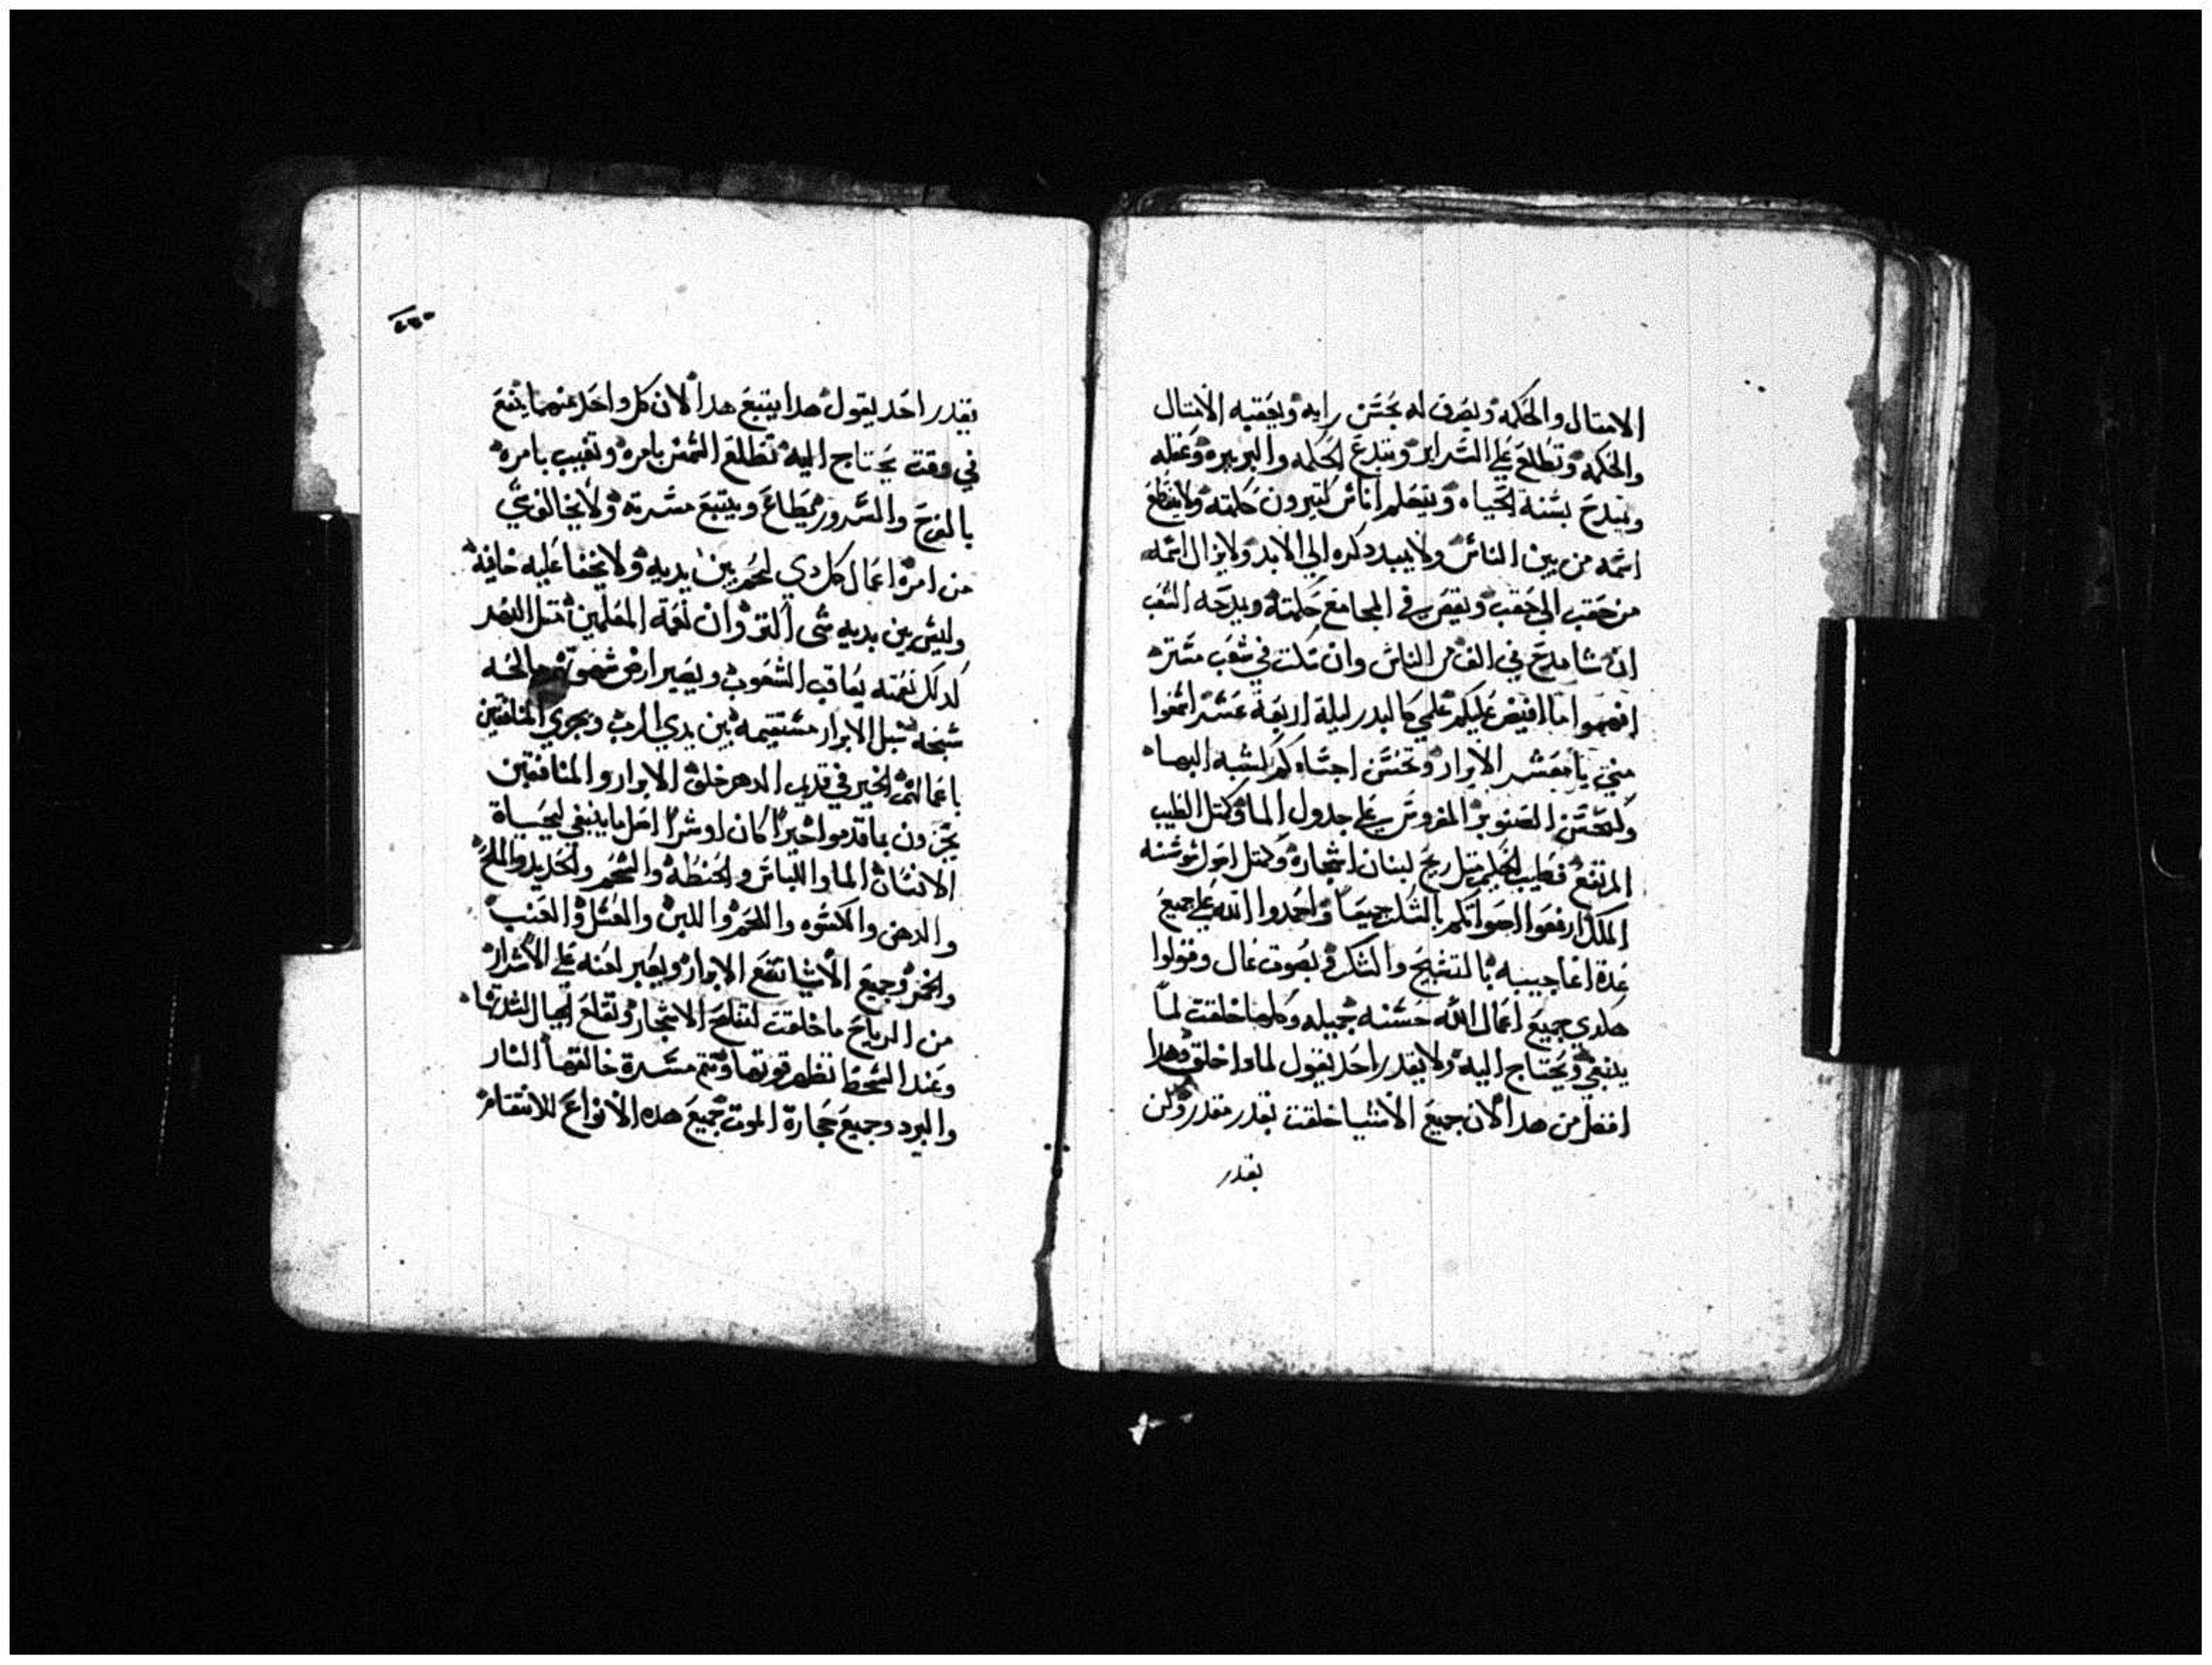 الامتال والحكمه ويصرف له بحسن رايه ويعقبه الامتال
والحكمه وتطلع علي السراير ويتبدع الحكمه والبربره وعقله
ويتبدح بسنة الحياه ويتعلم اناس كتيرون حكمته ولا ينقطع
اسمه من بين الناس ولا يبيد دكره الي الابد ولا يزال اسمه
من حقب الي حقب ويقص في المجامع حكمته ويدحه الشعب
ان شا مدح في الف من الناس وان سكت في شعب ستره
افهموا ما افيض عليكم علمي كالبدر ليلة اربعة عشر اسمعوا
مني يا معشر الابرار وتحسن اجسادكم لشبه البها
وكحسن الصنوبر المغروس علي جدول الما وكمثل الطيب
المرتفع فطيب الحكم متل ريح لبنان اشجاره وكمتل اصول سوسنه
الملك ارفعوا اصواتكم بالشكر جميعا واحمدوا الله علي جميع
عدة اعاجيبه بالتسبيح والشكر في بصوت عال وقولوا
هكدي جميع اعمال الله حسنه جميله وكلها خلقت لما
ينبغي ويحتاج اليه ولا يقدر احد يقول لمادا خلق هدا
افضل من هدا لان جميع الاشيا خلقت بقدر مقدر ولن
يقدر
يقدر احد يقول هدا يتبع هدا لان كل واحد منهما ينفع
في وقت يحتاج اليه تطلع الشمس بامره وتغيب بامره
بالفرح والسرور يطاع ويتبع مسرته ولا يخالف شي
من امره اعمال كل دي لحم بين يديه ولا يخفا عليه خافيه
وليس بين يديه شي اكتر وان نعمة المعلمين متل النهر
كدلك نقمته يعاقب الشعوب ويصير ارض مالحه
سبخه سبل الابرار مستقيمه بين يدي الرب ويجزي المنافقين
باعمالهم الخير في قديم الدهر خلق الابرار والمنافقين
يجزون بما قدموا خيرا كان او شرا اصل ما ينبغي لحياة
الانسان الما واللباس والحنطه والشحم والحديد والملح
والدهن والكسوه واللحم واللبن والعسل والعنب
والخمر وجميع الاشيا تنفع الابرار ويصير لعنه علي الاشرار
من الرياح ما خلقت لتقلع الاشجار وتقلع الجبال لشدتها
وعند السخط تظهر قوتها وتتم مسرة خالقها النار
والبرد وجميع حجارة الموت جميع هده الانواع للانتقام